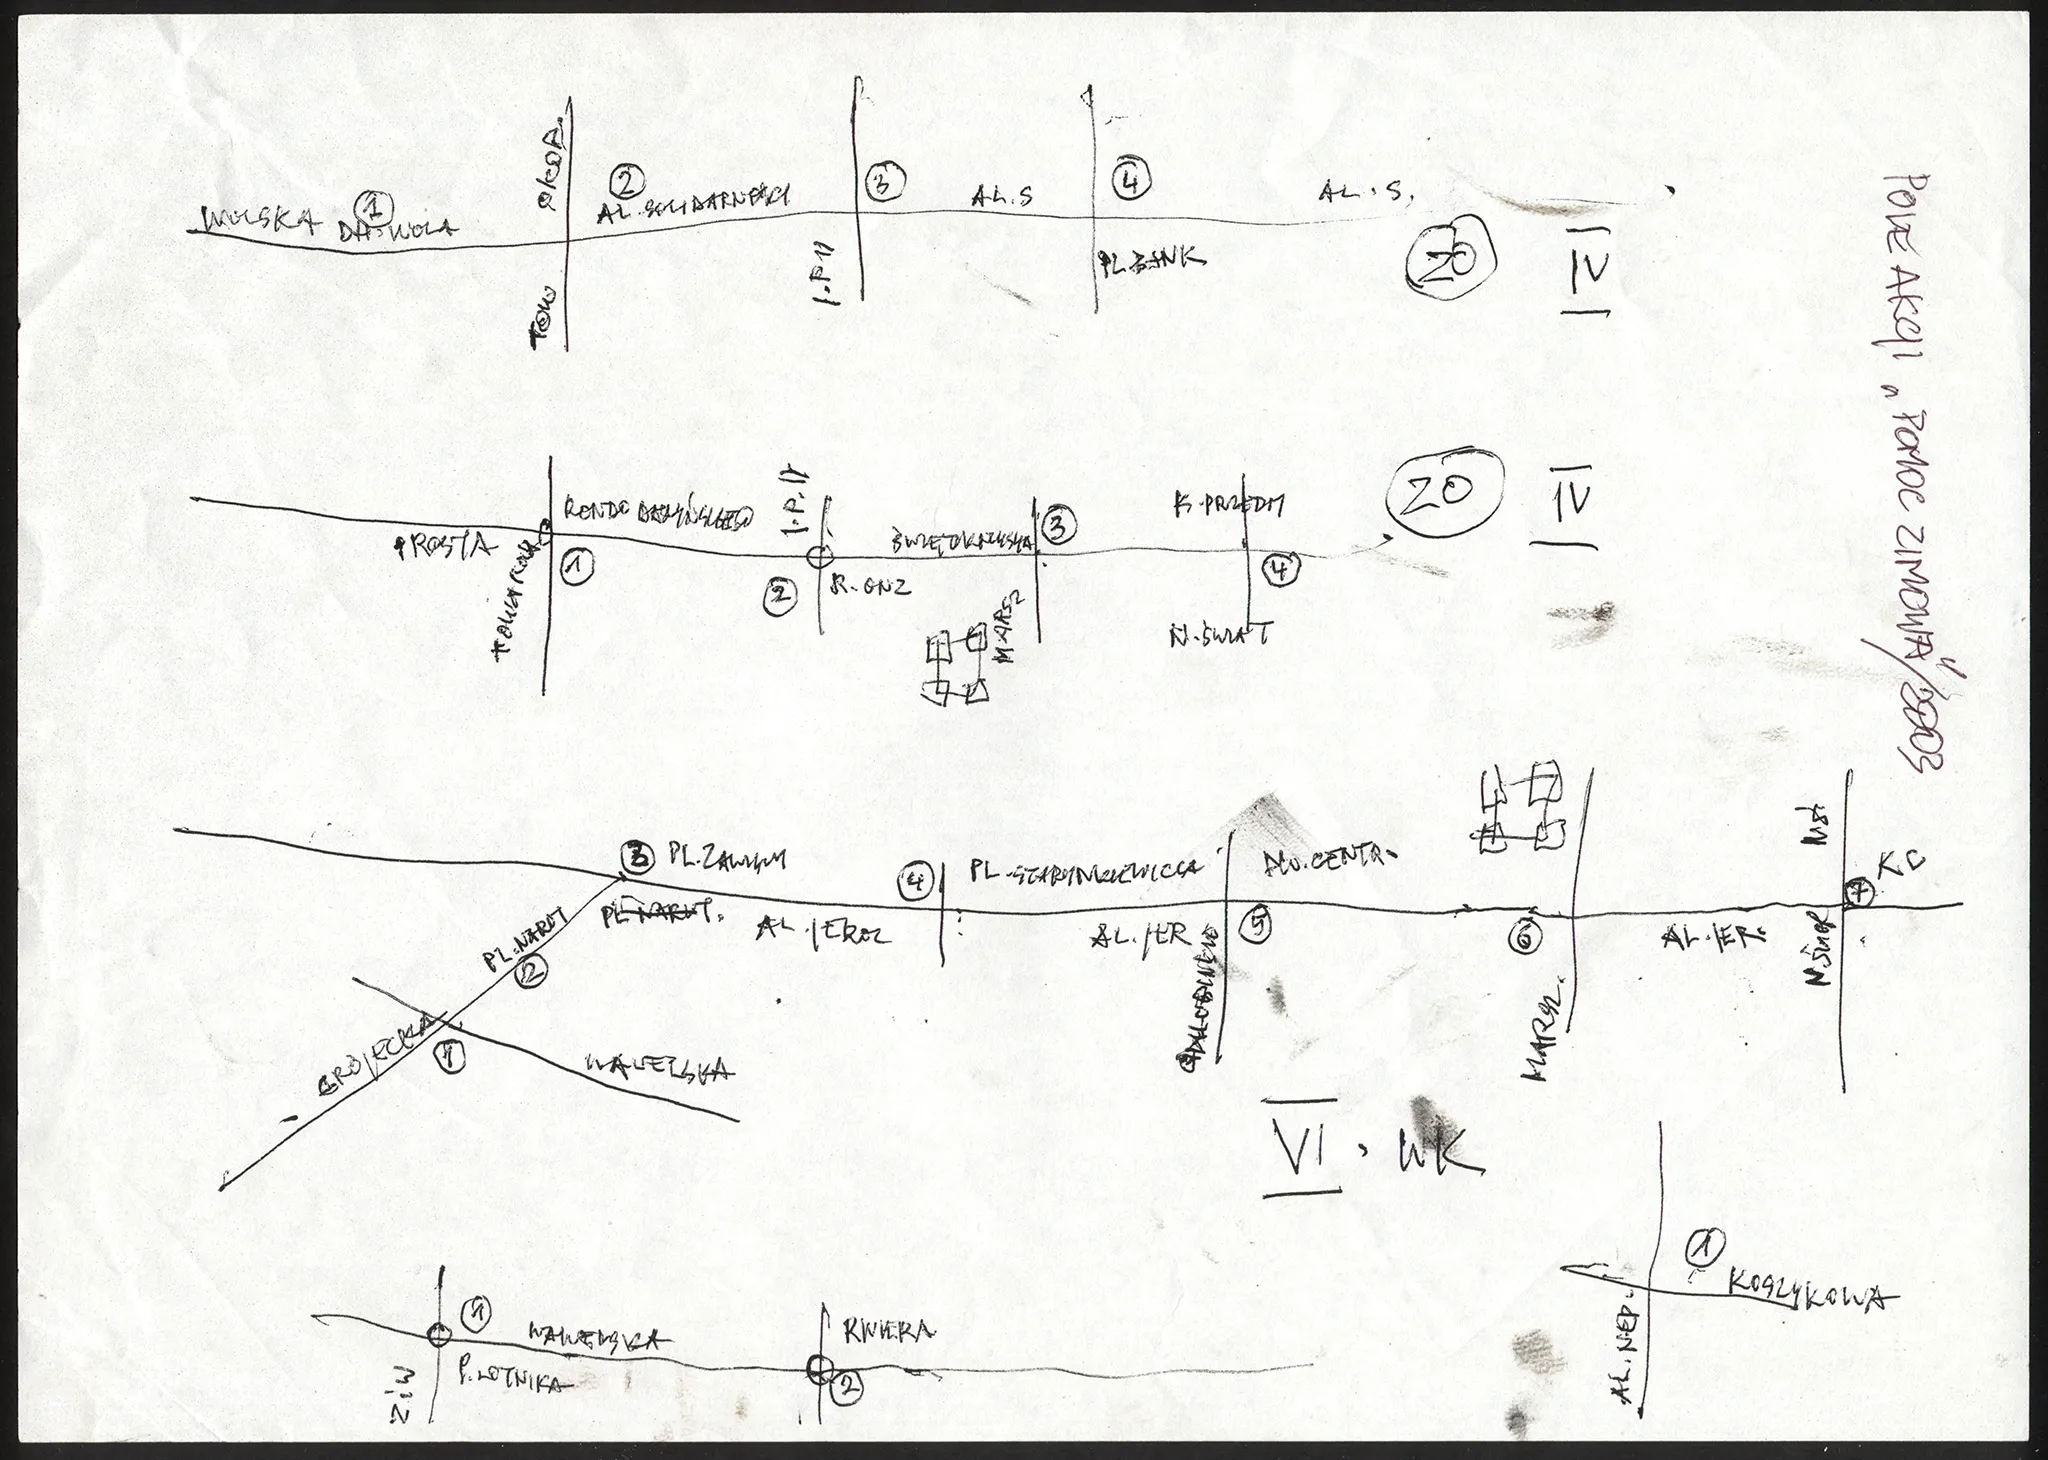 WOLSKA
1
DAS WOLA
OKOP.
TOW
2
AL. SOLIDARNOŚCI
J.P.II
3
AL. S
4
PL. BANK
AL. S.
20
IV
PROSTA
TOWAROWA
RONDO DASZYŃSKIEGO
1
J.P.II
2
R. ONZ
ŚWIĘTOKRZYSKA
MARSZ
3
K. PRZEDM
4
N. ŚWIAT
20
IV
POLE AKCJI „POMOC ZIMOWA"/2003
GRÓJECKA
1
WAWELSKA
PL. NARUT
2
3 PL. ZAWISZY
PL. NARUT.
AL. JEROZ
4
PL. STARYNKIEWICZA
AL. JER
5
DW. CENTR.
6
MARSZ.
AL. JER.
N. ŚWIAT
7
KC
VI. WK
ŻIW
1
WAWELSKA
P. LOTNIKA
RIVIERA
2
AL. NIEP.
1
KOSZYKOWA